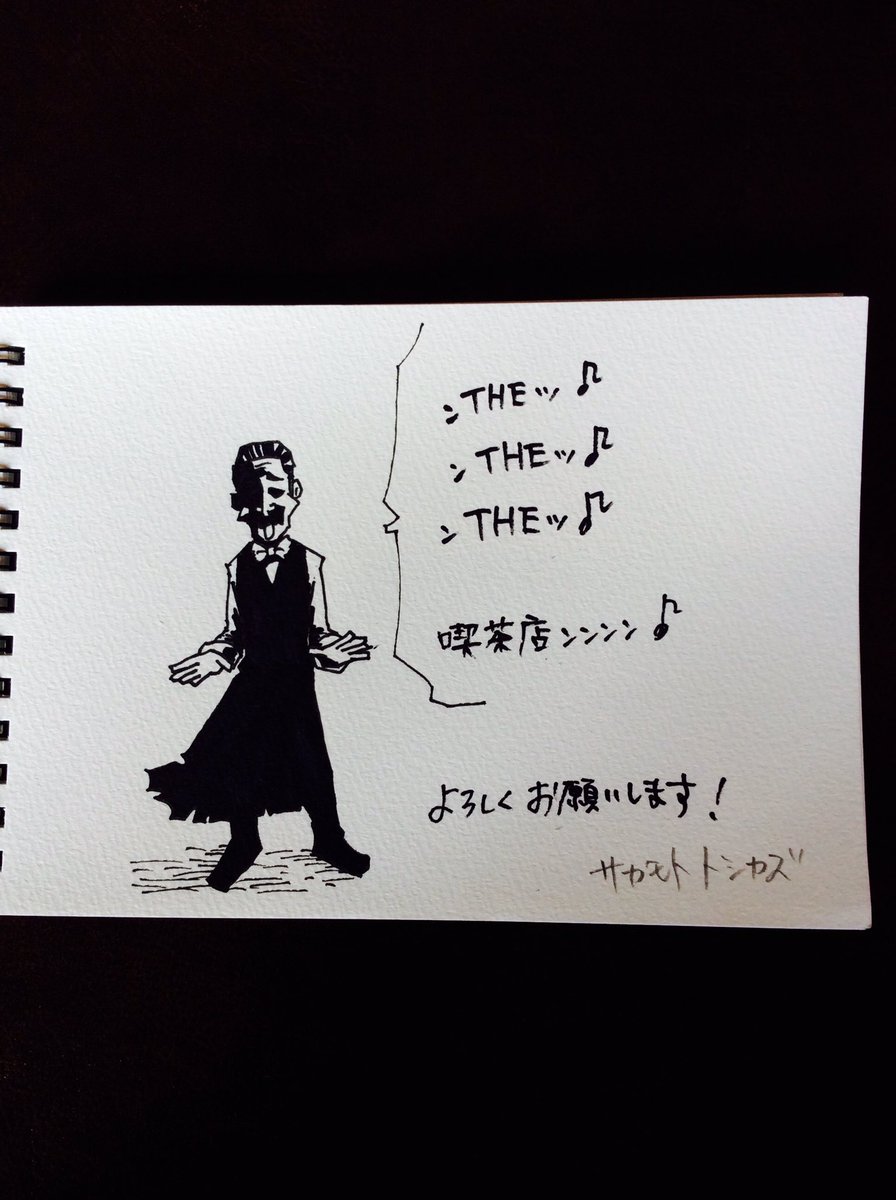 ンTHEッ♪
ンTHEッ♪
ンTHEッ♪
喫茶店ンンンン♪
よろしくお願いします!
サカモト トシカズ